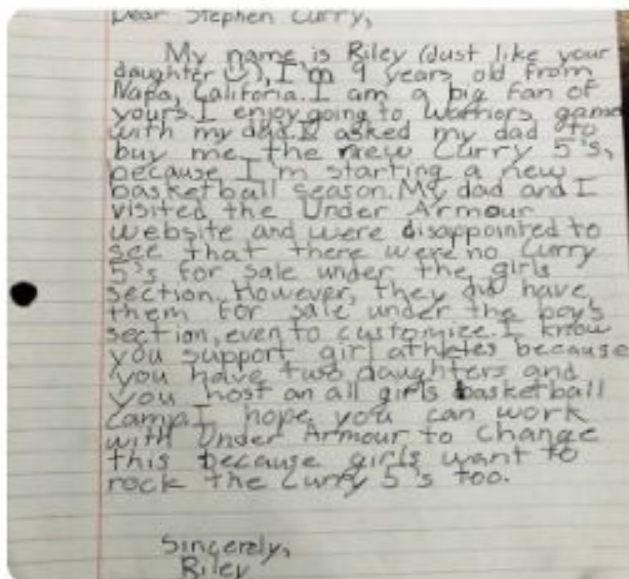 Dear Stephen Curry,
My name is Riley (Just like your
daughter ☺), I'm 9 years old from
Napa, Califoria. I am a big fan of
yours. I enjoy going to Warriors game
with my dad. I asked my dad to
buy me the new Curry 5's,
because I'm starting a new
basketball season. My dad and I
visited the Under Armour
website and were disappointed to
see that there were no Curry
5's for sale under the girls
section. However, they did have
them for sale under the boy's
section, even to customize. I know
you support girl athletes because
you have two daughters and
you host an all girls basketball
camp. I hope you can work
with Under Armour to change
this because girls want to
rock the Curry 5's too.
Sincerely,
Riley